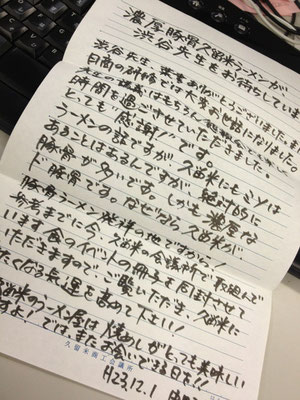 濃厚豚骨久留米ラーメンが
渋谷先生をお待ちしていま
渋谷先生、葉書ありがとうございました。ま
日商の研修では大変お世話になりました。
先生の講義はもちろん
時間を過ごさせていただきました。
とっても感謝!です。
ラーメンの話ですが、久留米にもミソは
あることはあるんですが、絶対的に
豚骨が多いです。しかも濃厚な
ド豚骨です。なぜなら、久留米が
豚骨ラーメン発祥の地ですから!
参考までに今、久留米の会議所で取組んで
います食のイベントの冊子を同封させて
いただきますので、ご覧いただき、久留米に
たくなる気運を高めて下さい!
留米のラーメン屋は焼めしがとっても美味しい
すよ?では、またお会いできる日を!!
H23.12.1
久留米商工会議所